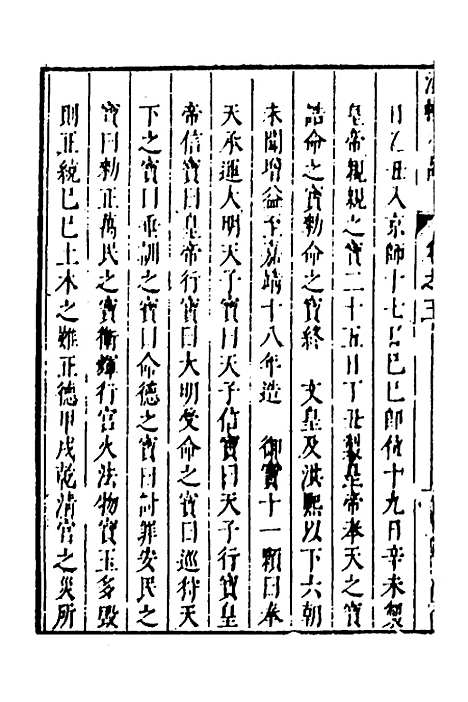 日乙丑入京師十七日己巳即位十九日辛未製
皇帝親親之寶二十五日丁丑製皇帝奉天之寶
誥命之寶勅命之寶終　文皇及洪熙以下六朝
未聞增益至嘉靖十八年造　御寶十一顆曰奉
天承運大明天子寶曰天子信寶曰天子行寶皇
帝信寶曰皇帝行寶曰大明受命之寶曰巡狩天
下之寶曰垂訓之寶曰命德之寶曰討罪安民之
寶曰勅正萬民之寶衛輝行宮火法物寶玉多毀
則正統己巳土木之難正德甲戌乾清宮之災所